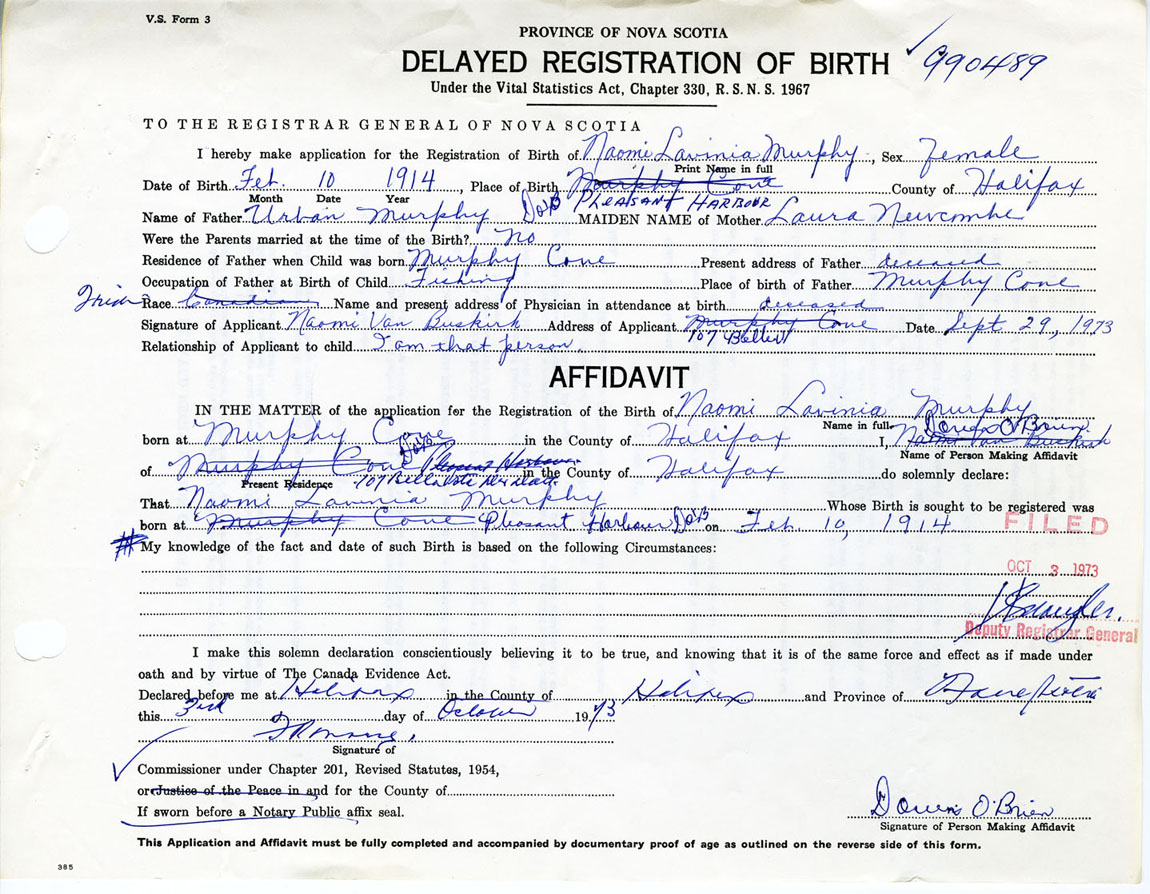 V.S. Form 3
PROVINCE OF NOVA SCOTIA
DELAYED REGISTRATION OF BIRTH
990489
Under the Vital Statistics Act, Chapter 330, R. S. N. S. 1967
TO THE REGISTRAR GENERAL OF NOVA SCOTIA
I hereby make application for the Registration of Birth of Naomi Lavinia Murphy, Sex Female
Print Name in full
Date of Birth Feb. 10 1914, Place of Birth Murphy Cove County of Halifax
Month Date Year
PLEASANT HARBOUR
Name of Father Urban Murphy DO'B MAIDEN NAME of Mother Laura Newcombe
Were the Parents married at the time of the Birth? No
Residence of Father when Child was born Murphy Cove Present address of Father deceased
Occupation of Father at Birth of Child Fishing Place of birth of Father Murphy Cove
Irish Race Canadian Name and present address of Physician in attendance at birth deceased
Signature of Applicant Naomi Van Buskirk Address of Applicant Murphy Cove Date Sept 29, 1973
107
Relationship of Applicant to child I am that person.
AFFIDAVIT
IN THE MATTER of the application for the Registration of the Birth of Naomi Lavinia Murphy
Name in full
Doreen O'Brien
born at Murphy Cove in the County of Halifax I, Naomi Van Buskirk
DO'B
Name of Person Making Affidavit
of Murphy Cove Pleasant Harbour in the County of Halifax do solemnly declare:
Present Residence 107
That Naomi Lavinia Murphy Whose Birth is sought to be registered was
born at Murphy Cove Pleasant Harbour DO'B on Feb. 10, 1914
FILED
# My knowledge of the fact and date of such Birth is based on the following Circumstances:
OCT 3 1973
Deputy Registrar General
I make this solemn declaration conscientiously believing it to be true, and knowing that it is of the same force and effect as if made under
oath and by virtue of The Canada Evidence Act.
Declared before me at Halifax in the County of Halifax and Province of Nova Scotia
this 3rd day of October 1973
Signature of
Commissioner under Chapter 201, Revised Statutes, 1954,
or Justice of the Peace in and for the County of
If sworn before a Notary Public affix seal.
Doreen O'Brien
Signature of Person Making Affidavit
This Application and Affidavit must be fully completed and accompanied by documentary proof of age as outlined on the reverse side of this form.
385